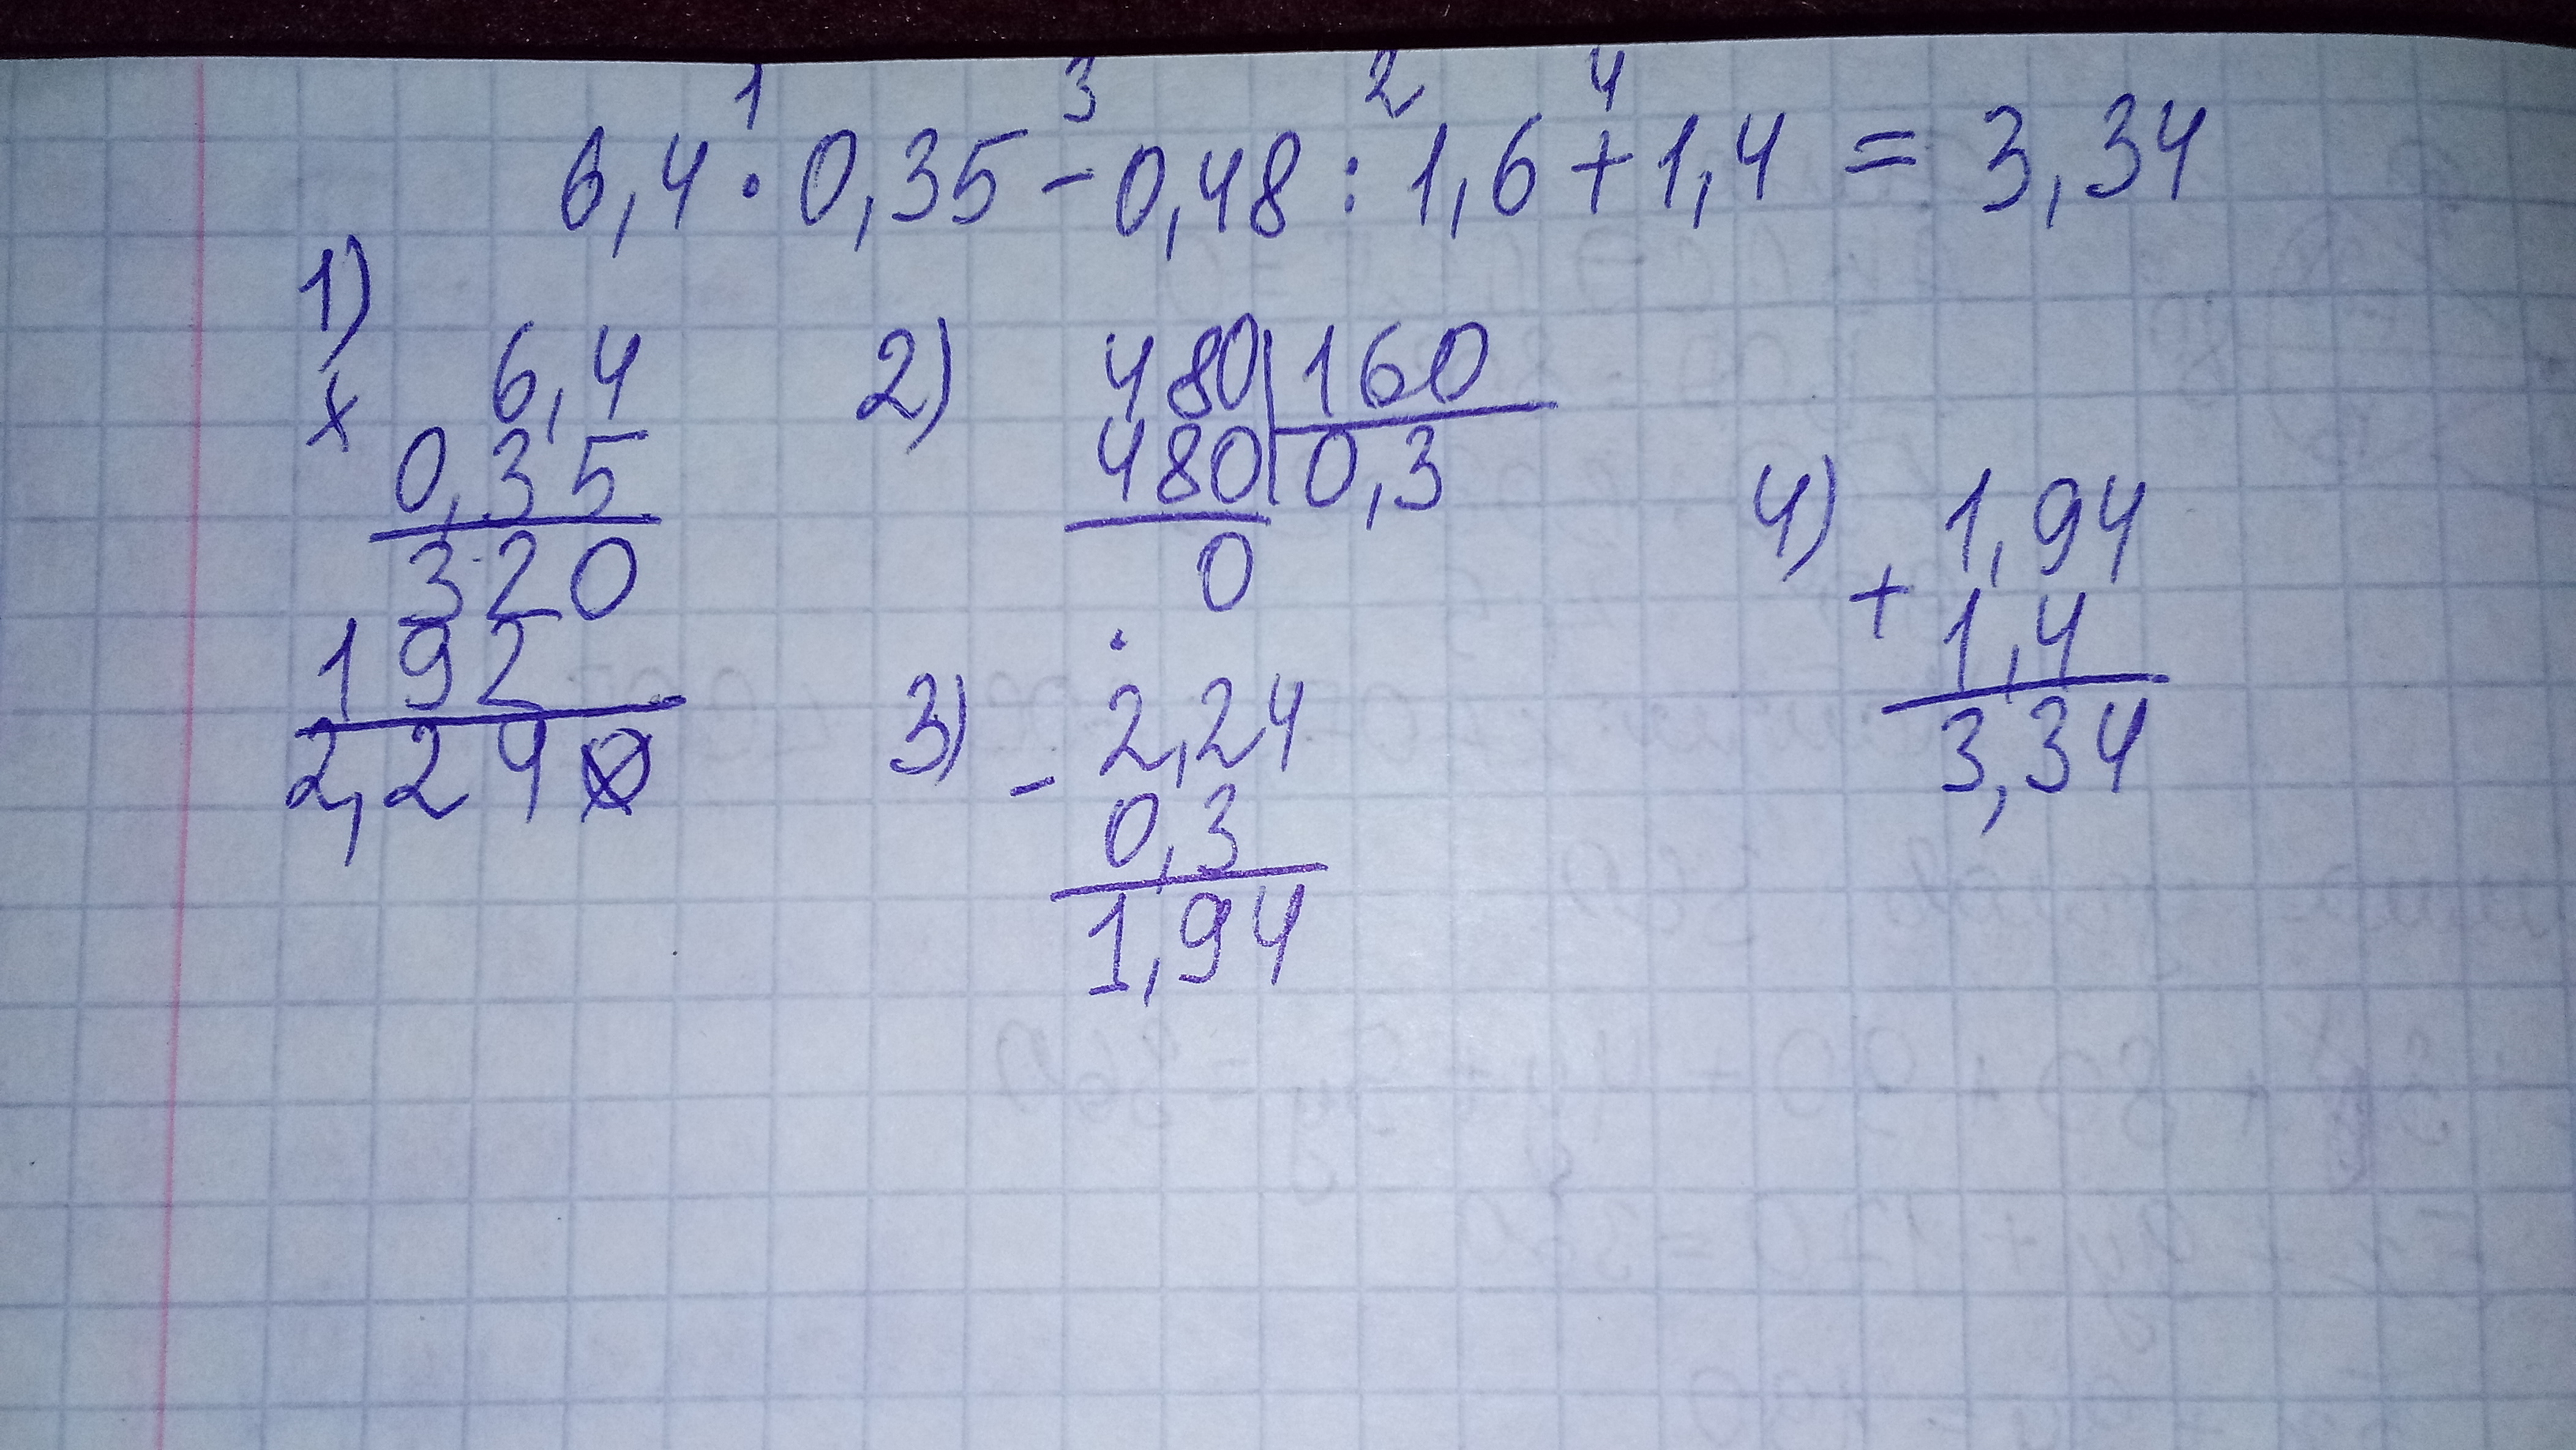 1 3 2 4
6,4 · 0,35 - 0,48 : 1,6 + 1,4 = 3,34
1)
x 6,4
0,35
320
192
2,240
2) 480 160
480 0,3
0
3) - 2,24
0,3
1,94
4) 1,94
+ 1,4
3,34